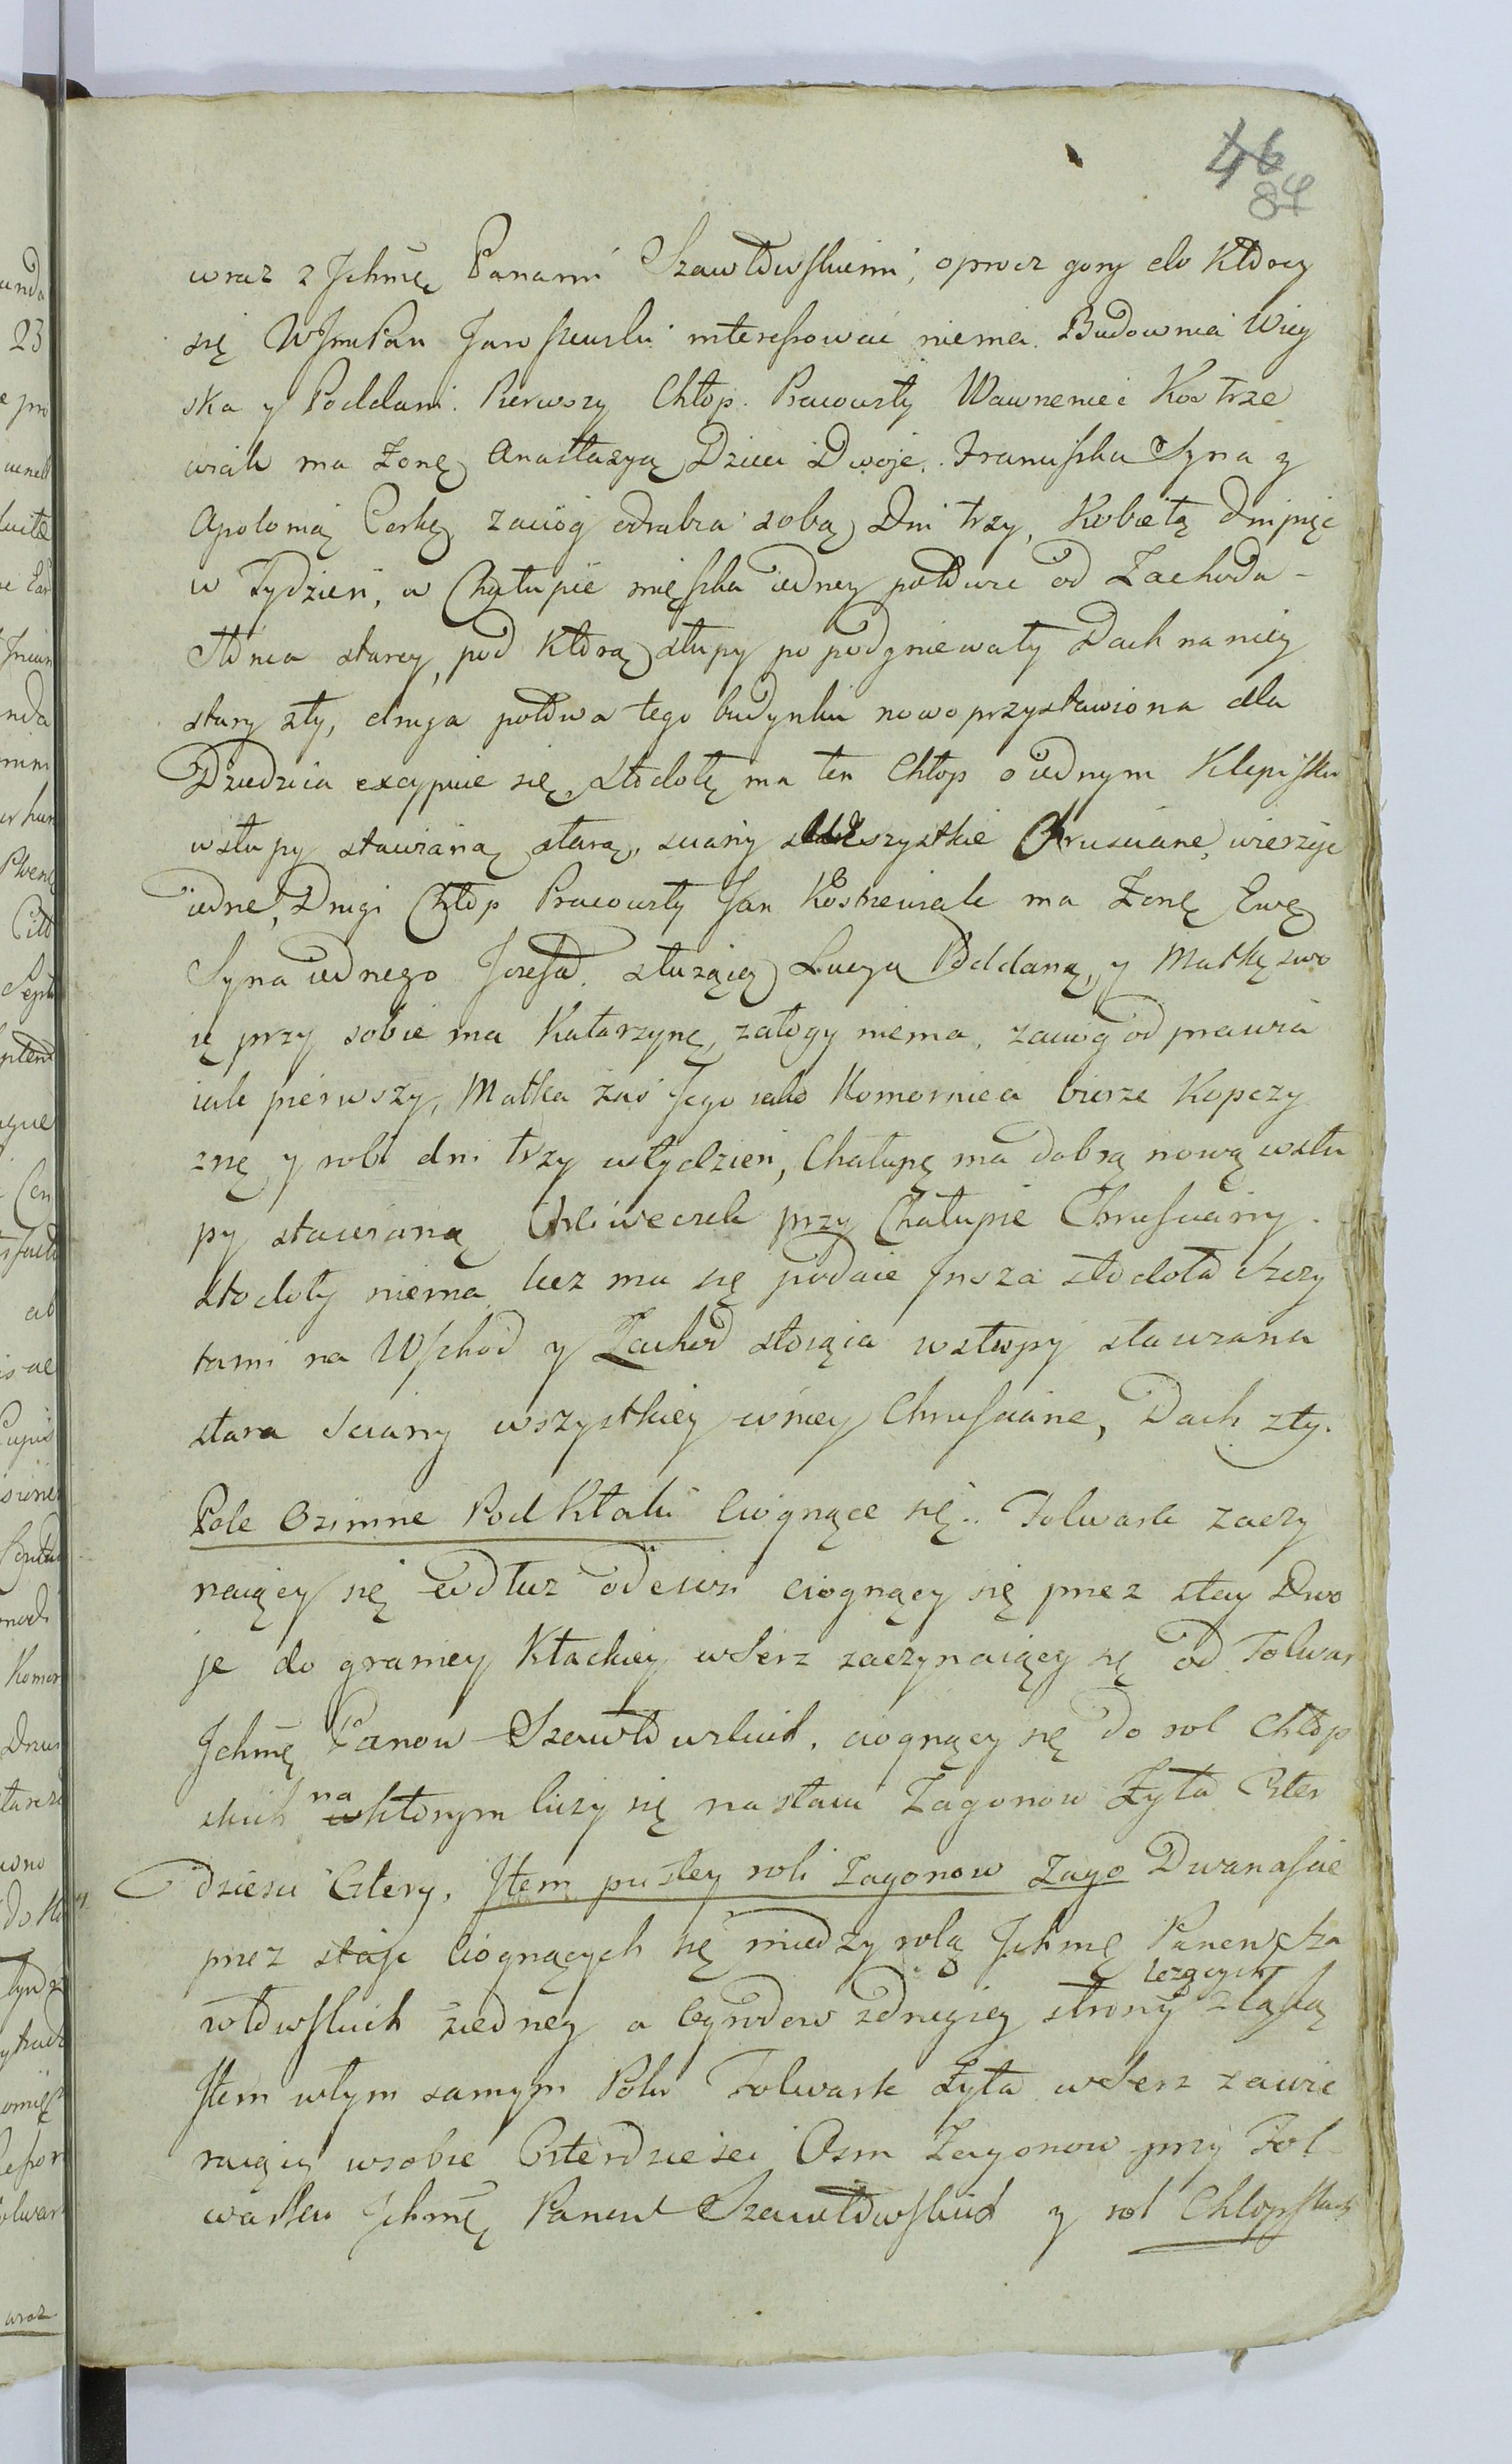 46
87
wraz z Jchmę Panami Szawłowskiemi, oprocz gory do ktorey
się WJmPan Jaroszewski interessować niema. Budownia Wiey
ska y Poddani. Pierwszy Chłop. Pracowity Wawrzeniec Kostrze
wiak ma Zonę Anastazyą Dzieci Dwoje. Franciszka Syna y
Apolonią Corkę zaciog odrabia sobą Dni trzy, Kobietą dni pięc
w Tydzien, w Chałupie mięszka iedney połowie od Zachodu
słonca starey, pod ktorą słupy po podgniewały Dach na niey
stary zły, druga połowa tego budynku nowo przystawiona dla
Dziedzica excypuie się, stodołę ma ten Chłop o iednym Klepisku
w słupy stawianą starą, sciany wszystkie Chrusciane, wierzeje
iedne, Drugi Chłop Pracowity Jan Kostrzewiak ma Zonę Ewę
Syna iednego Jozefa. słuzącą Lucyą Poddaną, y Matkę swo
ię przy sobie ma Katarzynę, załogy niema, zaciog odprawia
iak pierwszy, Matka zaś Jego iako Komornica bierze Kopczy
znę y robi dni trzy w tydzien, Chałupę ma dobrą nową w słu
py stawianą Chliweczek przy Chałupie Chrusciany.
stodoły niema lecz mu się podaie Jnsza stodoła szczy
tami na Wschod y Zachod stoiąca w słupy stawiana
stara sciany wszystkiey w niey Chrusciane, Dach zły.
Pole Ozimne Pod Kłaki Ciognące się. Folwark zaczy
naiący się wdłuz od wsi ciognący się przez staj Dwo
je do graniey Kłackiey w szerz zaczynaiący się od Folwar
Jchmę Panow Szawłowskich, ciognący się do rol Chłop
skich na wktorym liczy się nastaiu Zagonow Zyta Czter
dziesci Cztery. Jtem pustey roli Zagonow Zago Dwanascie
przez staje ciognących się miedzy rolą Jchmę Panow Sza
lezących
włowskich ziedney a Ogrodow zdrugiey strony z łąką
Jtem w tym samym Polu Folwark Zyta w szerz zawie
raiący w sobie Czterdziesci Osm Zagonow przy Fol
warku Jchmę Panow Szawłowskich y rol Chłopskich